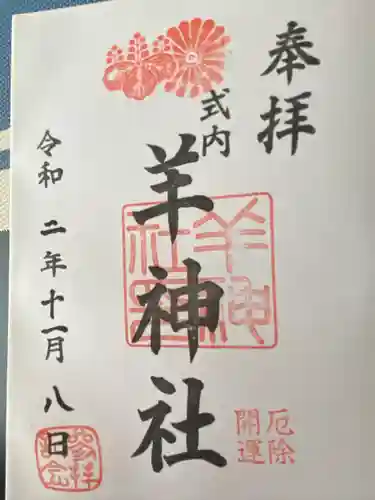 奉拝
式内
羊神社
令和二年十一月八日
羊神社璽
厄除
開運
参拝記念